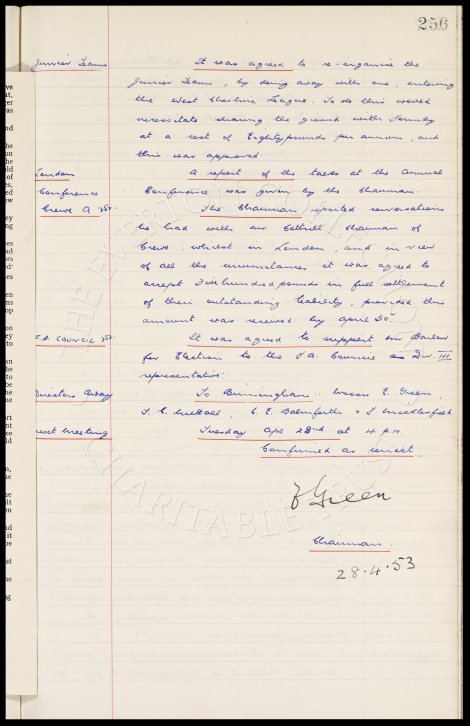 256
Junior Teams It was agreed to re-organise the
Junior Teams, by doing away with one, entering
the West Cheshire League. To do this would
necessitate sharing the ground with Formby
at a cost of Eighty pounds per annum, and
this was approved.
London A report of the talks at the Annual
Conference Conference was given by the Chairman.
Crewe A The Chairman reported conversations
he had with Mr Cottrell Chairman of
Crewe, whilst in London, and in view
of all the circumstances it was agreed to
accept Five hundred pounds in full settlement
of their outstanding liability, provided this
amount was received by April 30th
F.A. COUNCIL It was agreed to support Mr Barlow
for Election to the F.A. Council as Div. III
representative.
Directors Away To Birmingham: Messrs E. Green,
T. C. Nuttall, C. E. Balmforth &
next meeting Tuesday Apl 28th at 4 p.m.
Confirmed as correct.
E Green
Chairman.
28.4.53
THE EVERTON
CHARITABLE TRUST